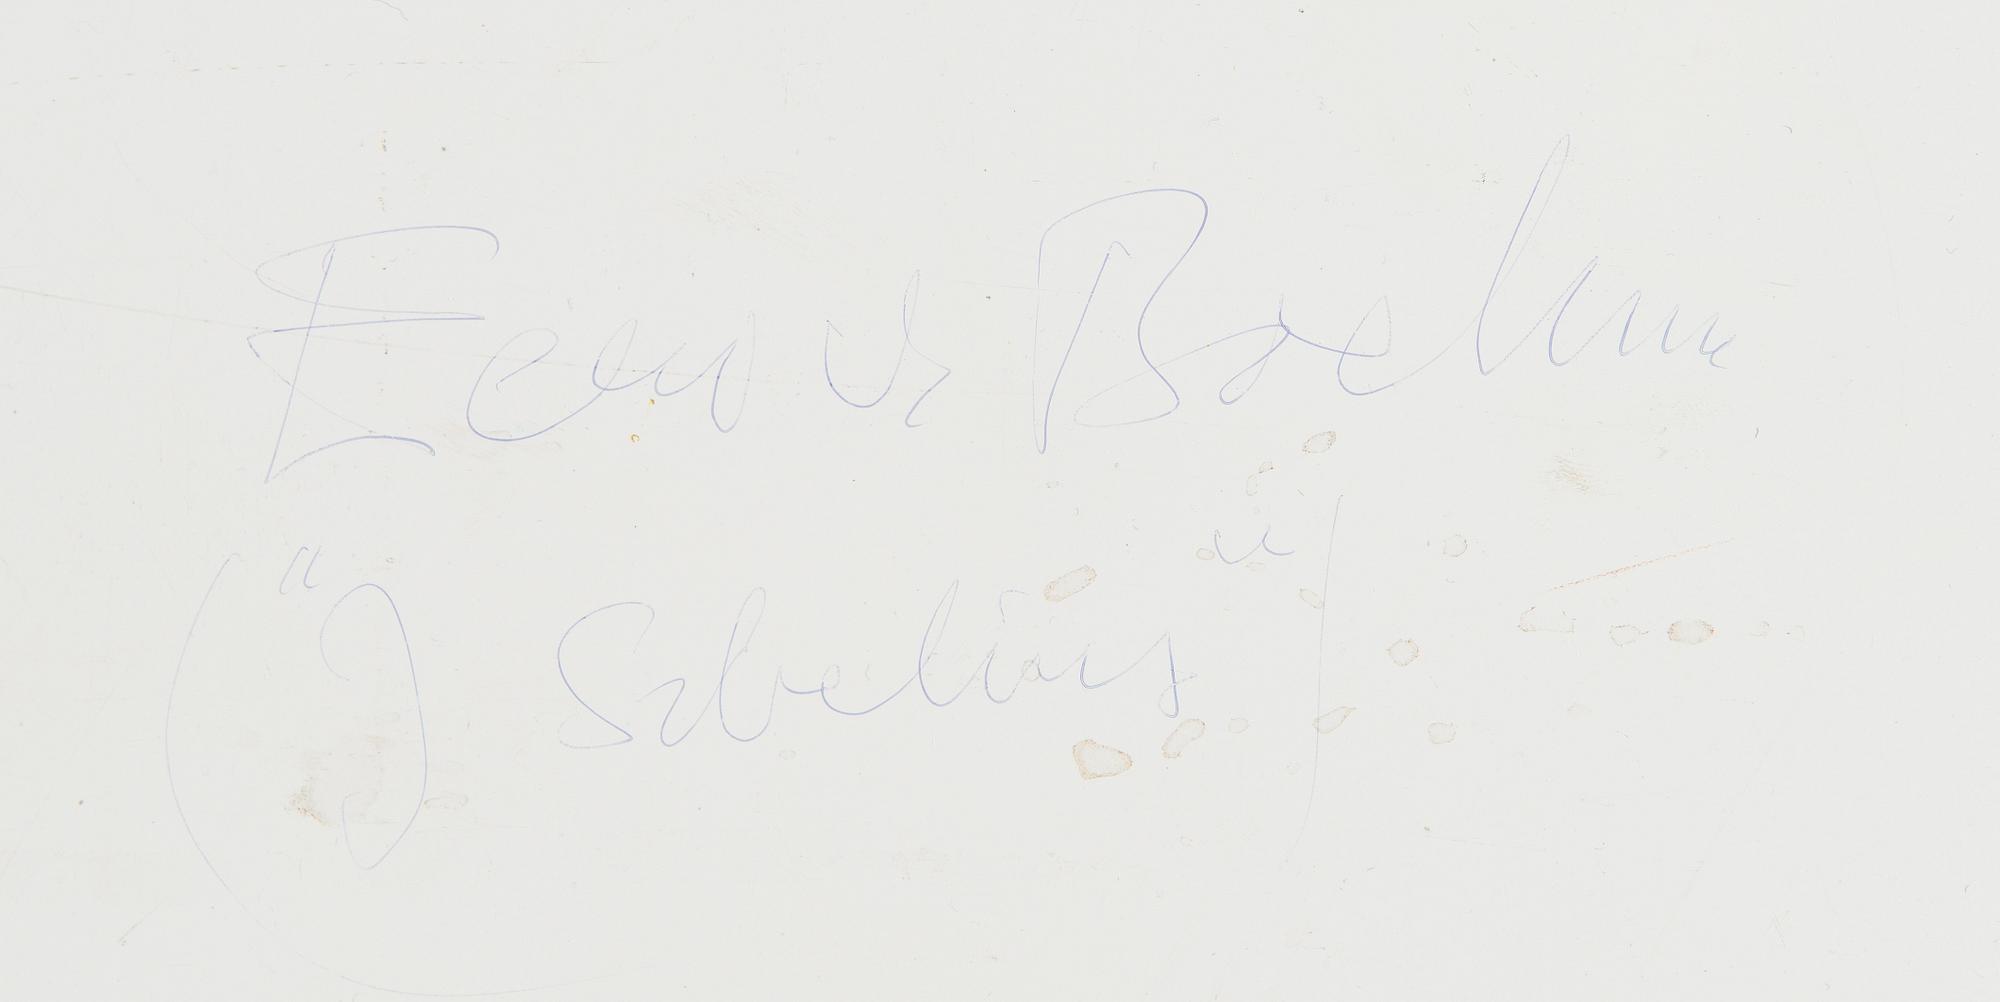 Eero v. Boehm
("J Sibelius")